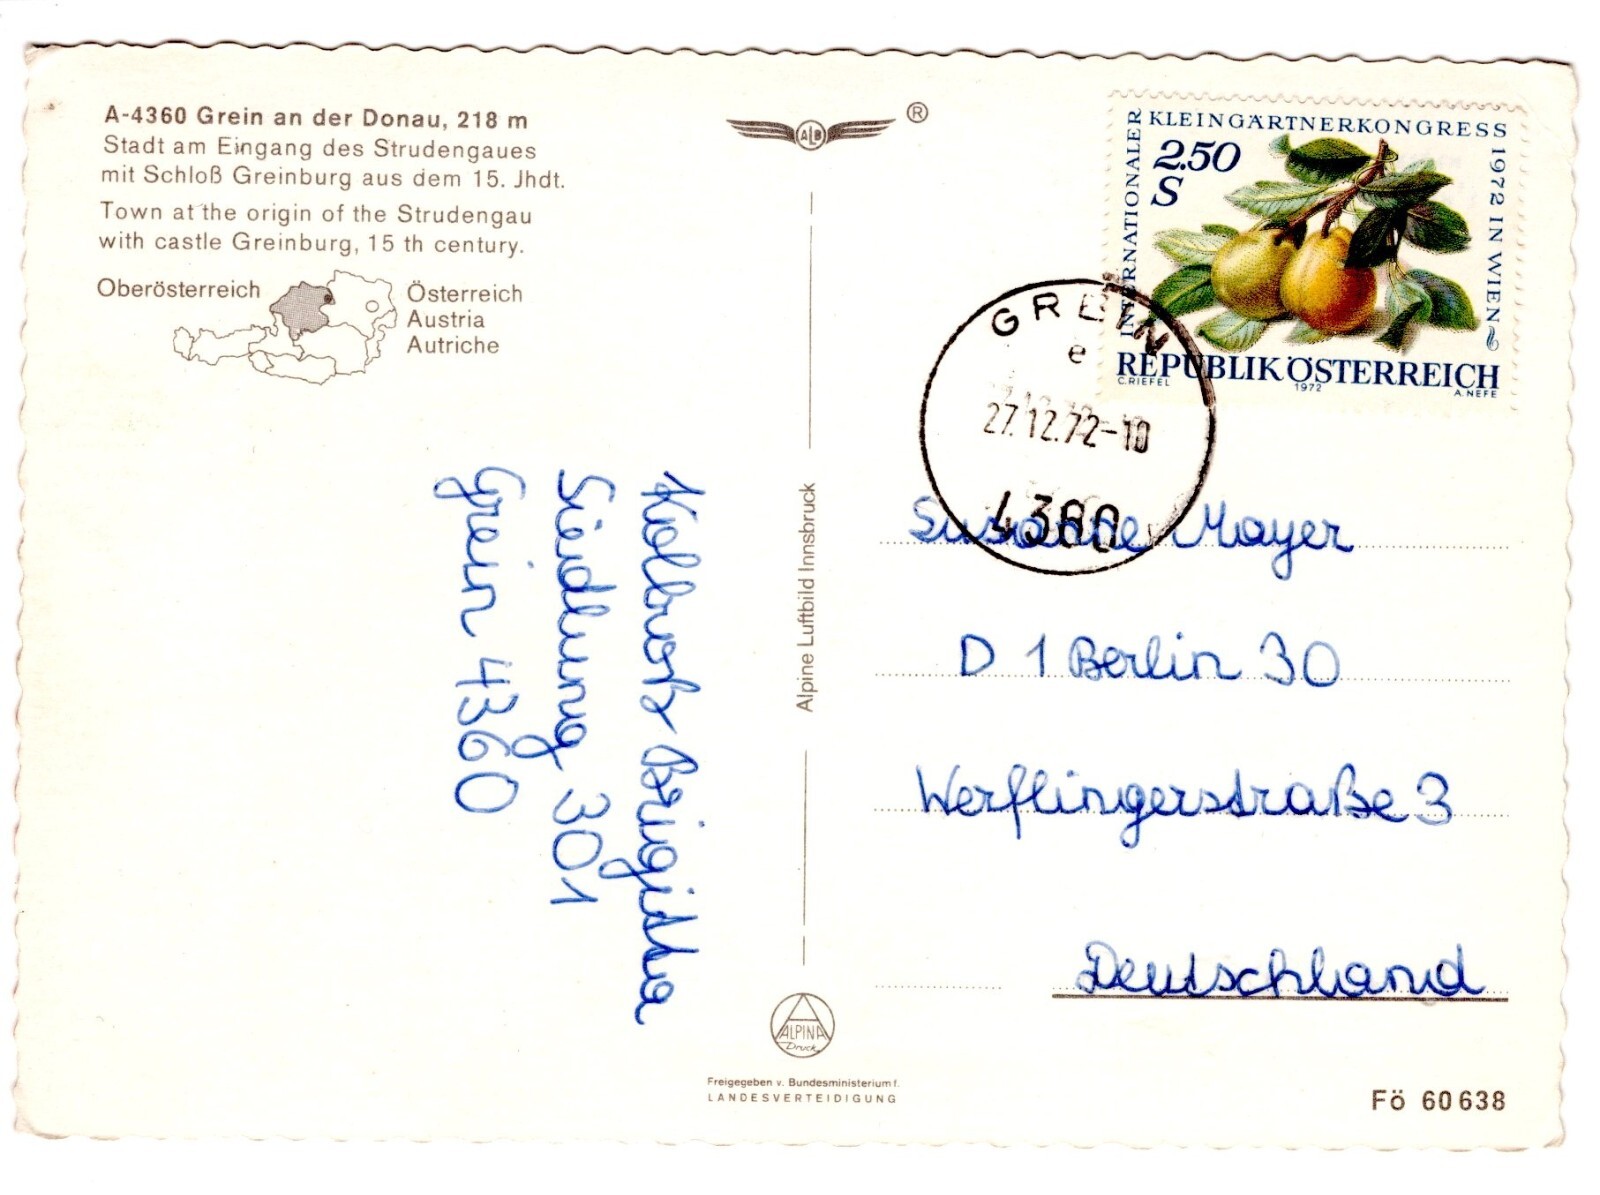 A-4360 Grein an der Donau, 218 m
Stadt am Eingang des Strudengaues
mit Schloß Greinburg aus dem 15. Jhdt.
Town at the origin of the Strudengau
with castle Greinburg, 15 th century.
Oberösterreich
Österreich
Austria
Autriche
ALB ®
INTERNATIONALER KLEINGÄRTNERKONGRESS 1972 IN WIEN
2.50
S
REPUBLIK ÖSTERREICH
C.RIEFEL 1972 A.NEFE
GREIN
e
27.12.72-10
4360
Brigitta
Siedlung 301
Grein 4360
Alpine Luftbild Innsbruck
Susanne Mayer
D 1 Berlin 30
Werflingerstraße 3
Deutschland
ALPINA
Druck
Freigegeben v. Bundesministerium f.
LANDESVERTEIDIGUNG
Fö 60 638